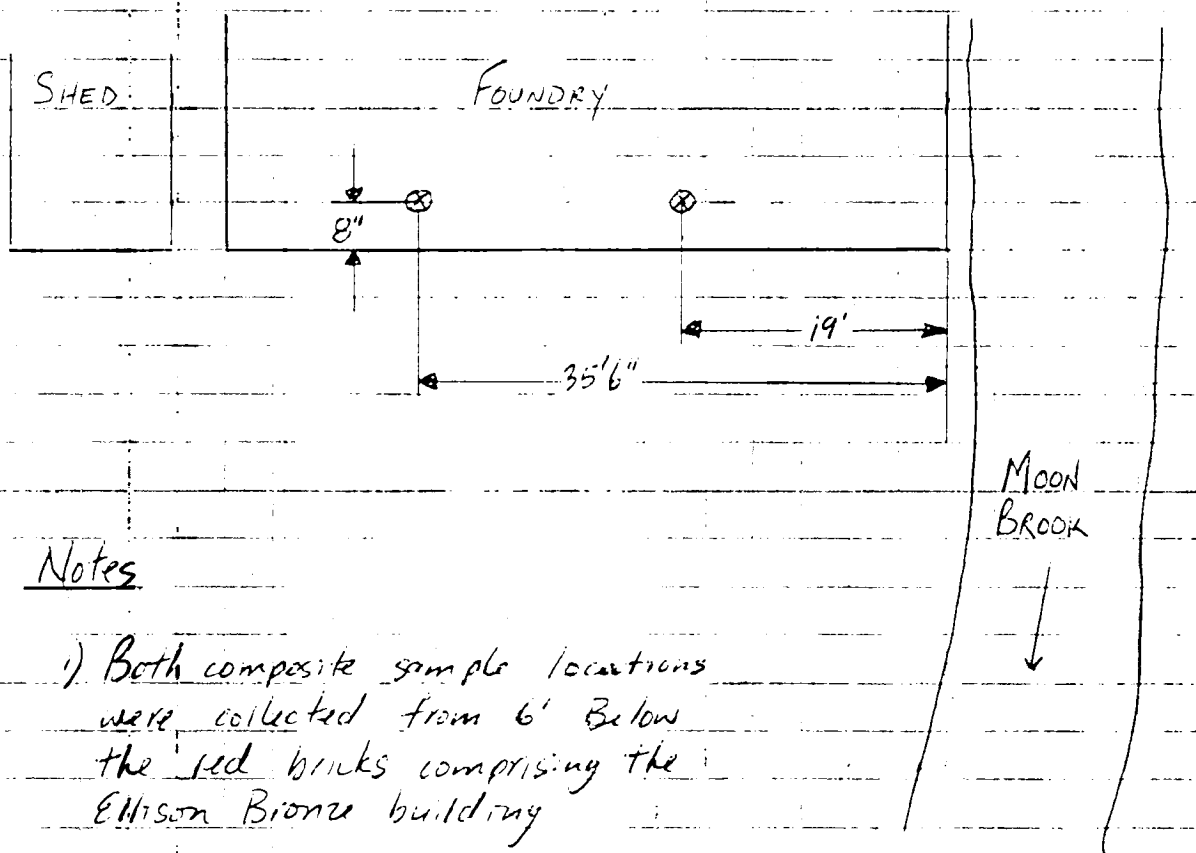 SHED
FOUNDRY
8"
19'
35'6"
MOON
BROOK
Notes
1) Both composite sample locations
were collected from 6' Below
the red bricks comprising the
Ellison Bronze building